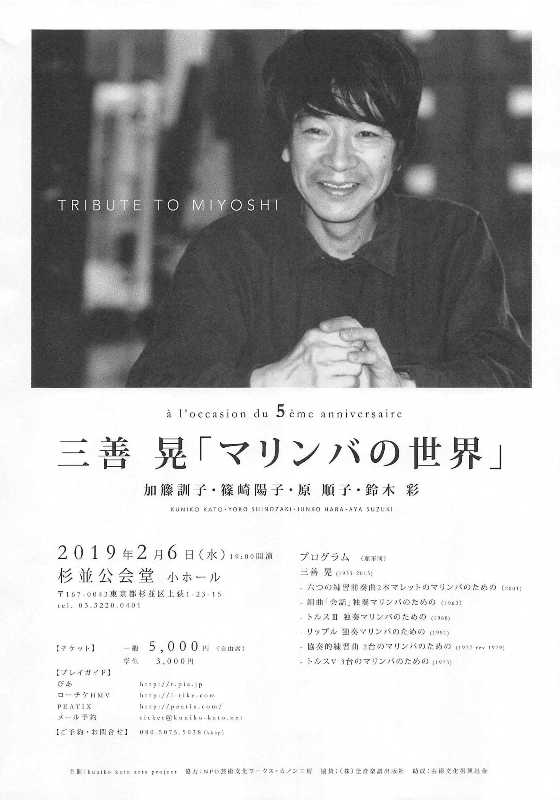 TRIBUTE TO MIYOSHI
à l'occasion du 5ème anniversaire
三善 晃「マリンバの世界」
加籐訓子・篠崎陽子・原 順子・鈴木 彩
KUNIKO KATO・YOKO SHINOZAKI・JUNKO HARA・AYA SUZUKI
2019年2月6日(水) 19:00開演
杉並公会堂 小ホール
〒167-0043東京都杉並区上荻1-23-15
tel. 03.3220.0401
【チケット】 一般 5,000円 (全自由)
学生 3,000円
【プレイガイド】
ぴあ http://t.pia.jp
ローチケHMV http://l-tike.com
PEATIX http://peatix.com/
メール予約 ticket@kuniko-kato.net
【ご予約・お問合せ】
プログラム (順不同)
三善 晃 (1933-2013)
- 六つの練習前奏曲2本マレットのマリンバのための (2001)
- 組曲「会話」独奏マリンバのための (1962)
- トルスⅢ 独奏マリンバのための (1968)
- リップル 独奏マリンバのための
- 協奏的練習曲 2台のマリンバのための (1977 rev 1979)
- トルスⅤ 3台のマリンバのための (1973)
主催:kuniko kato arts project 協力:NPO芸術文化ワークス・カノン工房